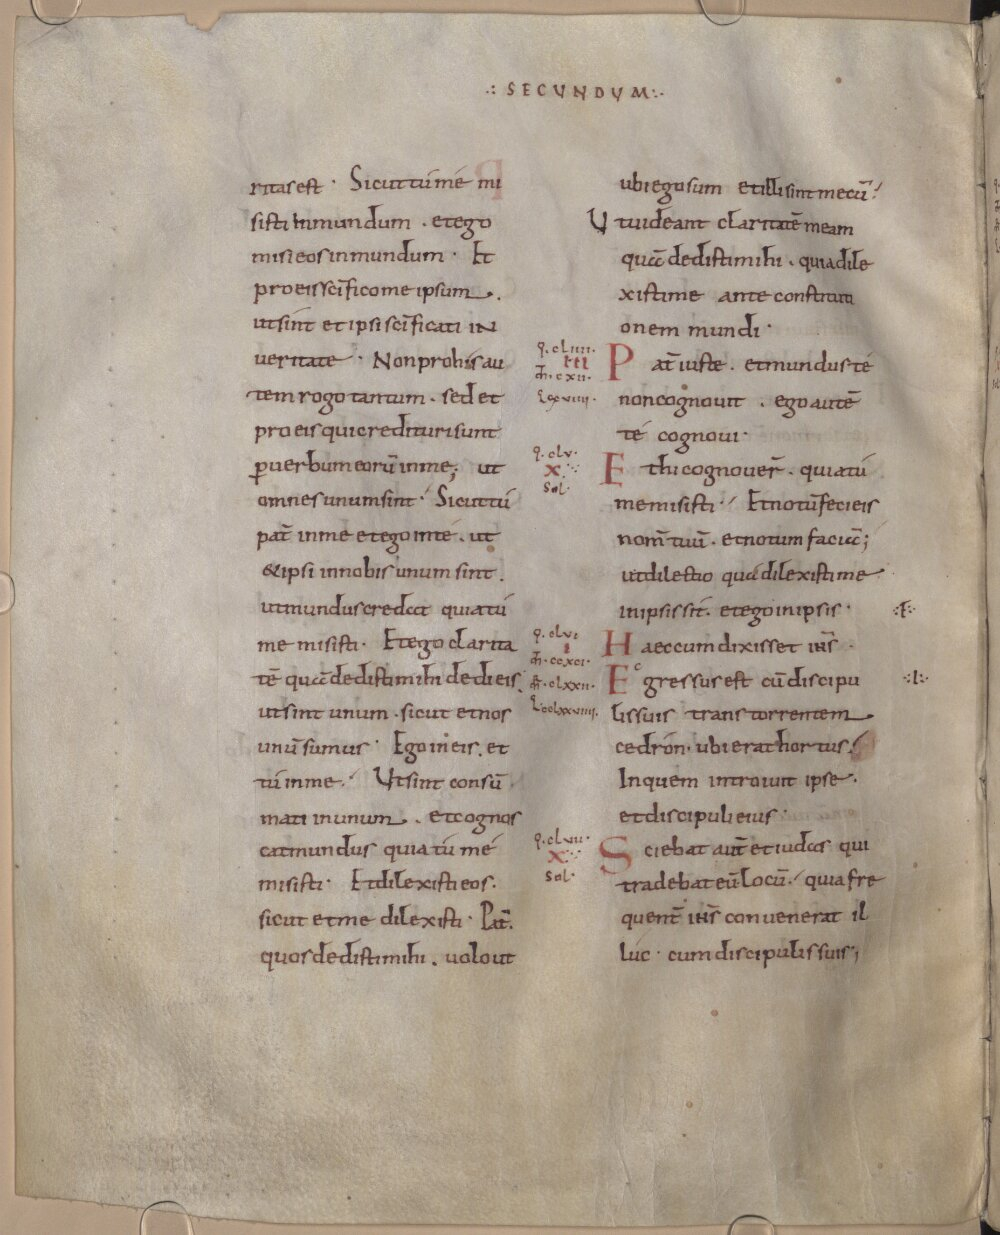 .: SECUNDUM :.
ritas est · Sicut tu me mi
sisti in mundum . et ego
misi eos in mundum · Et
pro eis sc̄ifico me ipsum .
ut sint et ipsi sc̄ificati in
veritate · Non pro his au
tem rogo tantum . sed et
pro eis qui credituri sunt
p̱ verbum eorū in me; ut
omnes unum sint · Sicut tū
pat̄ in me et ego in té . ut
& ipsi in nobis unum sint .
ut mundus credat quia tú
me misisti · Et ego clarita
tē quā dedisti mihi dedi eis .
ut sint unum . sicut et nos
unū sumus · Ego in eis . et
tú in me · Ut sint consū
mati in unum . et cognos
cat mundus quia tú mé
misisti · Et dilexisti eos .
sicut et me dilexisti · Pat̄ .
quos dedisti mihi . volo ut
ubi ego sum et illi sint mecū ·
Ut videant claritatē meam
quā dedisti mihi . quia dile
xisti me ante constituti
onem mundi ·
q . clıııı .
ııı
m̄ . cxıı .
l . xvıııı .
Pat̄ iuste . et mundus té
non cognovit . ego autē
té cognovi ·
q . clv .
x
Sol .
Et hi cognover̄ . quia tú
me misisti · Et notū feci eis
nom̄ tuū . et notum faciā ;
ut dilectio quā dilexisti me
in ipsis sit . et ego in ipsis ·
·F·
q . clvı
ı
m̄ . ccxcı .
m̄ . clxxıı .
l . cclxxvıııı .
Haec cum dixisset ih̄s ·
Egressus est cū discipu
·I·
lis suis trans torrentem
cedrón . ubi erat hortus ·
In quem introivit ipse ·
et discipuli eius ·
q . clvıı .
x
Sol .
Sciebat aut̄ et iudas qui
tradebat eū locū · quia fre
quent̄ ih̄s convenerat il
luc · cum discipulis suis ;